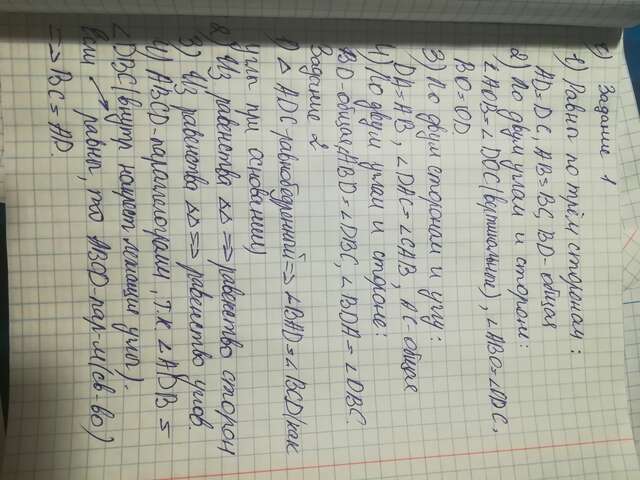 с) Задание 1
1) Равны по трём сторонам:
AD=DC, AB=BC, BD-общая
2) По двум углам и стороне:
∠AOB=∠DOC(вертикальные), ∠ABO=∠ODC,
BO=OD.
3) По двум сторонам и углу:
DA=AB, ∠DAC=∠CAB, AC-общая
4) По двум углам и стороне:
BD-общая, ∠ABD=∠DBC, ∠BDA=∠DBC.
Задание 2
1) △ ADC-равнобедренный=>∠BAD=∠BCD(как
углы при основании)
2) Из равенства △△=>равенство сторон
3) Из равенства △△=>равенство углов.
4) ABCD-параллелограмм, т.к. ∠ADB=
∠DBC(внутр накрест лежащие углы).
Если равны, то ABCD-пар-м(св-во)
=>BC=AD.